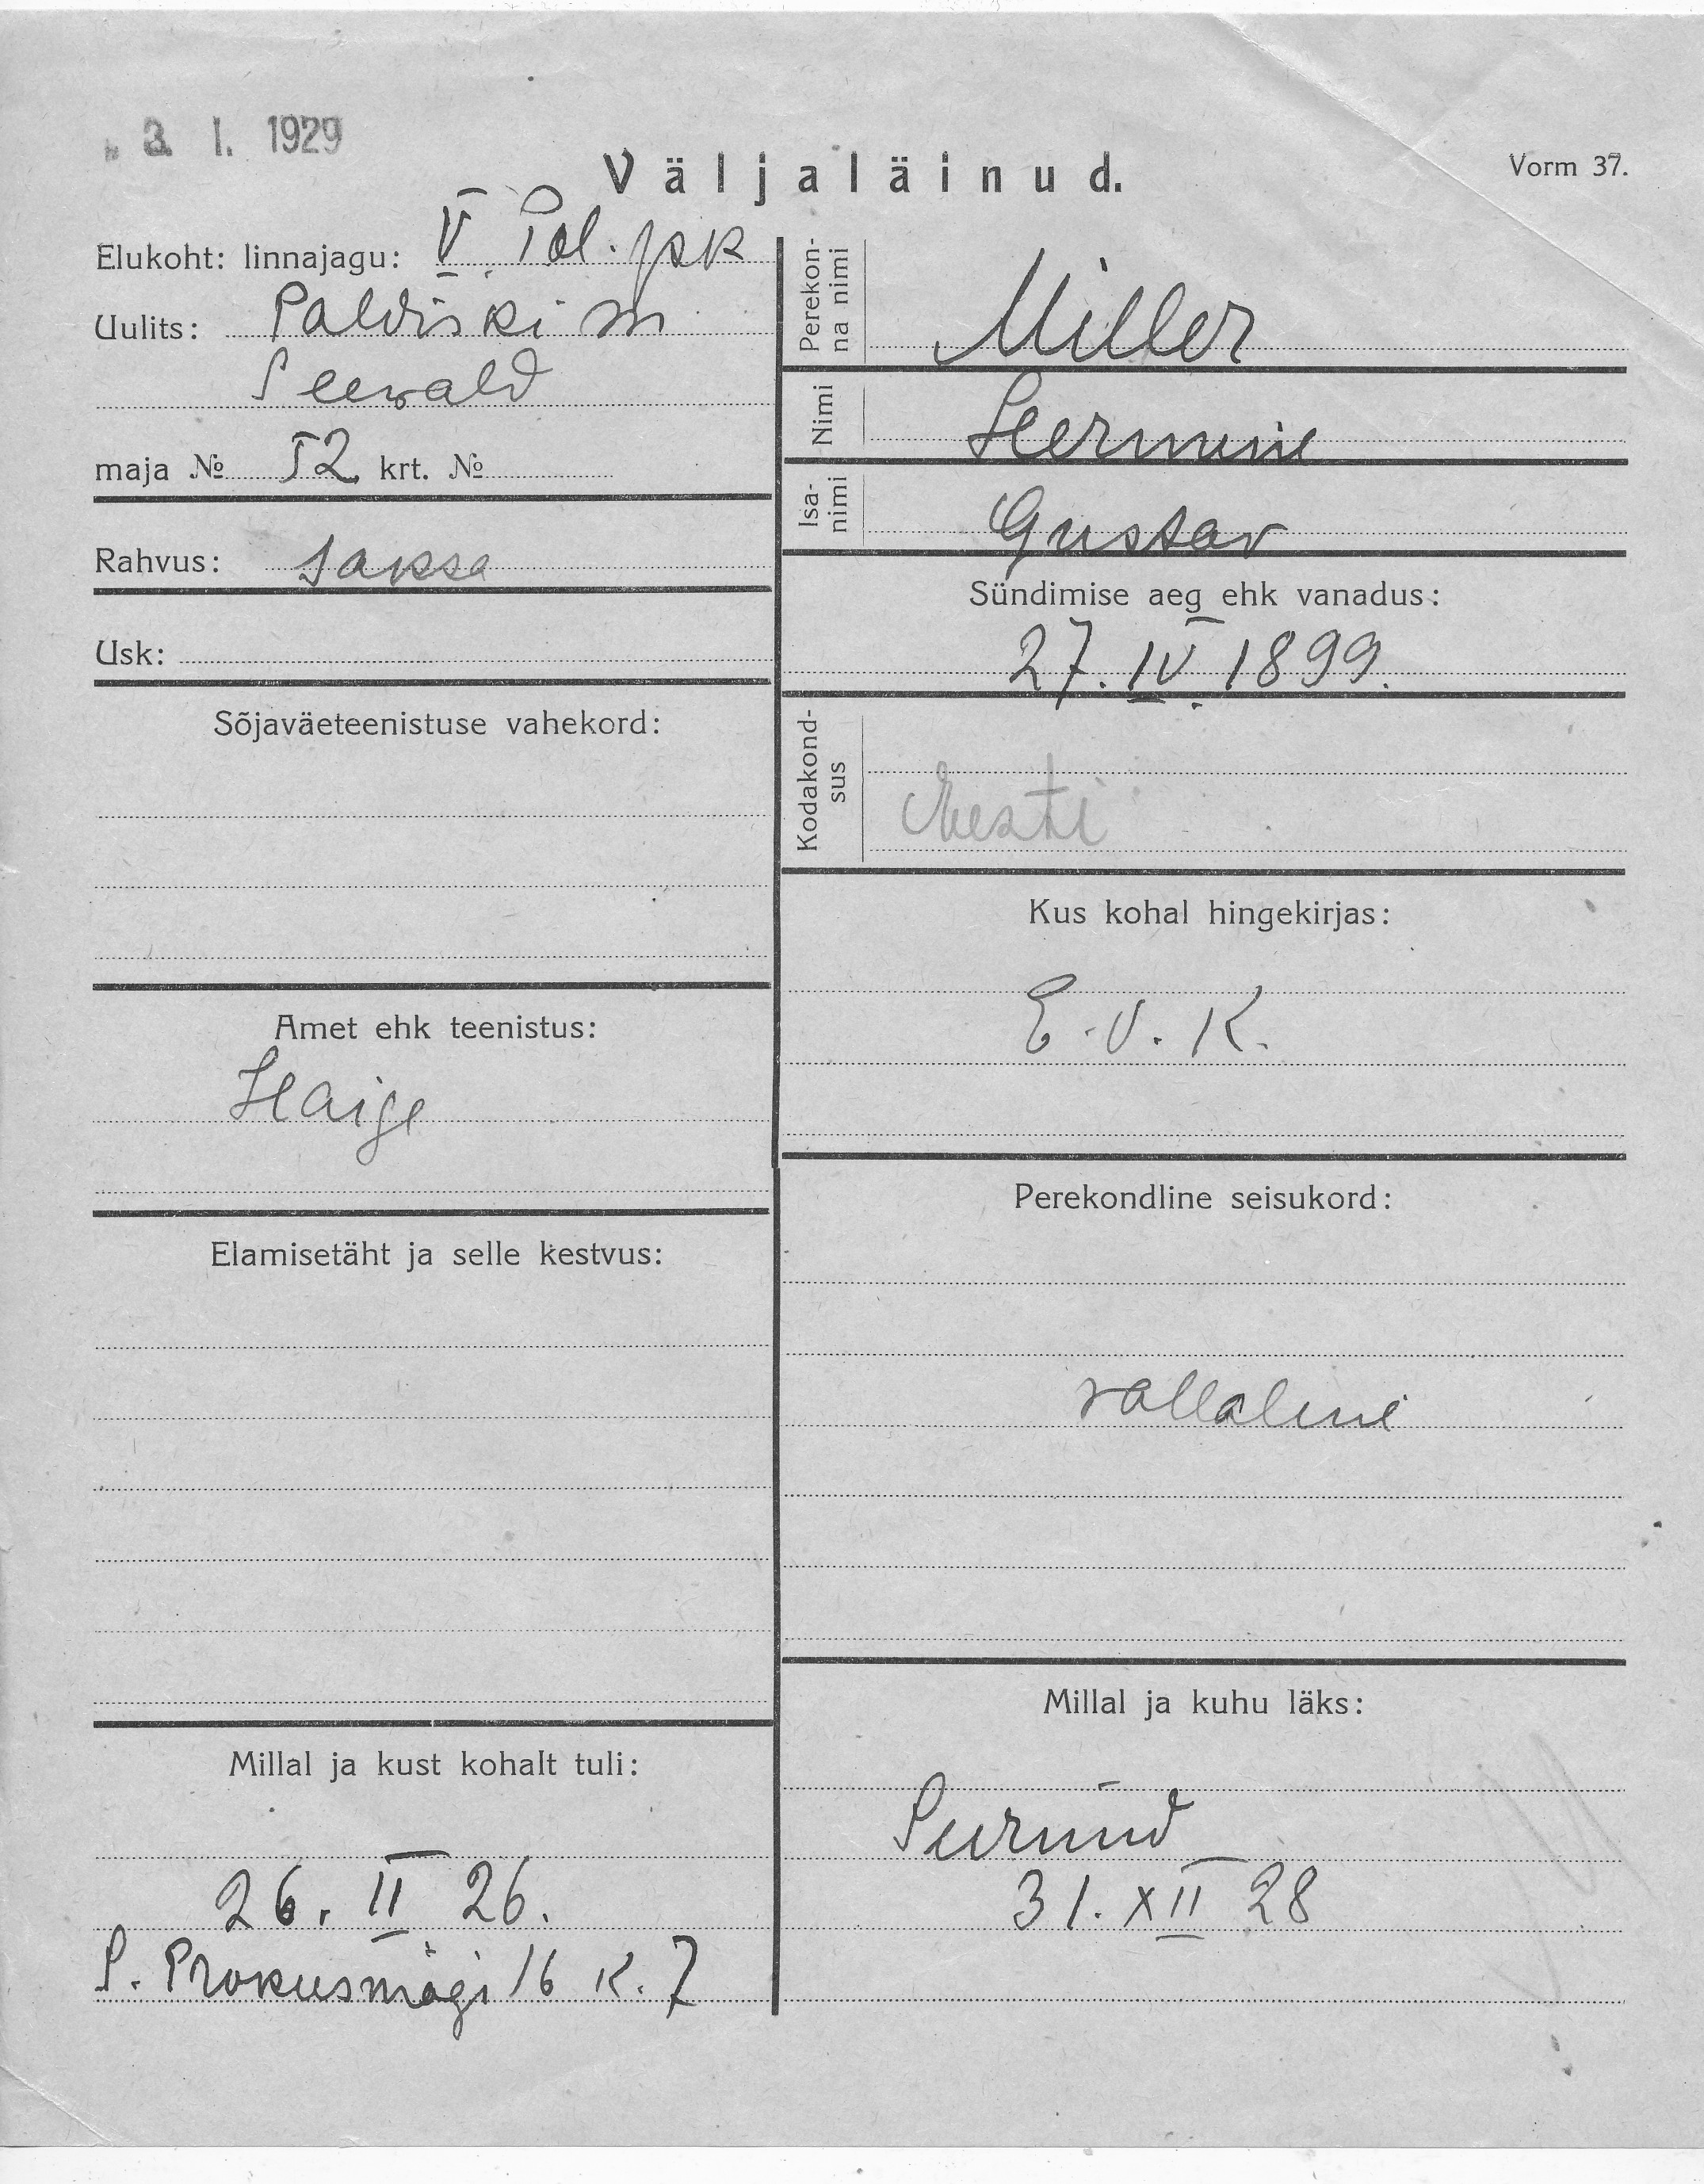 3. I. 1929
Väljaläinud.
Vorm 37.
Elukoht: linnajagu: V. Pol. jsk
Uulits: Paldiski m
Seewald
maja № 52 krt. №
Rahvus: saksa
Usk:
Sõjaväeteenistuse vahekord:
Amet ehk teenistus:
Haige
Elamisetäht ja selle kestvus:
Millal ja kust kohalt tuli:
26. II 26.
S. Prokusmägi 16 K. 7
Perekon-
na nimi
Miller
Nimi Hermine
Isa-
nimi
Gustav
Sündimise aeg ehk vanadus:
27. IV. 1899.
Kodakond-
sus
Eesti
Kus kohal hingekirjas:
E. V. K.
Perekondline seisukord:
vallaline
Millal ja kuhu läks:
Surnud
31. XII 28